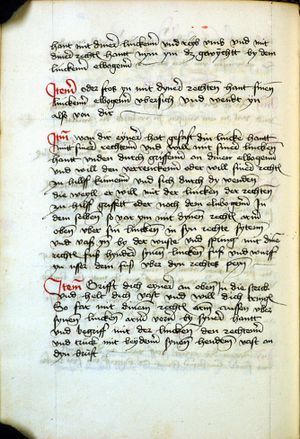 hant mit diner lincken und reyb umb und mit
diner rechten hant nym yn das gewycht by dem
lincken elbogen
Item oder stos yn mit dyner rechten hant sinen
lincken elbogen ubersich und wendt yn
also von dir
Item wan dir eyner hat gefast din lincke hant
mit siner rechten und will mit siner lincken
hant unden durch griffen an dinen elbogen
und will den verrucken oder will siner rechten
zu hilff kumen und sich durch dy wenden
die wyl er will mit der lincken der rechten
zu hilff griffen oder noch dem elnbogen In
dem selben so var yn mit dynen rechten arm
oben uber sin lincken in syn rechte syten
und fas yn by der und spring mit dinem
rechten fus hynder synen lincken fus und wurf
yn uss dem fus uber dyn rechtes peyn
Item Grifft dich eyner an oben in die
und helt dich vast und will dich
So far mit dinem rechten arm aussen uber
synen lincken arm vorn by syner hant
und begriff mit der lincken den rechten
und truck mit beyden synen henden vast an
dyn brust